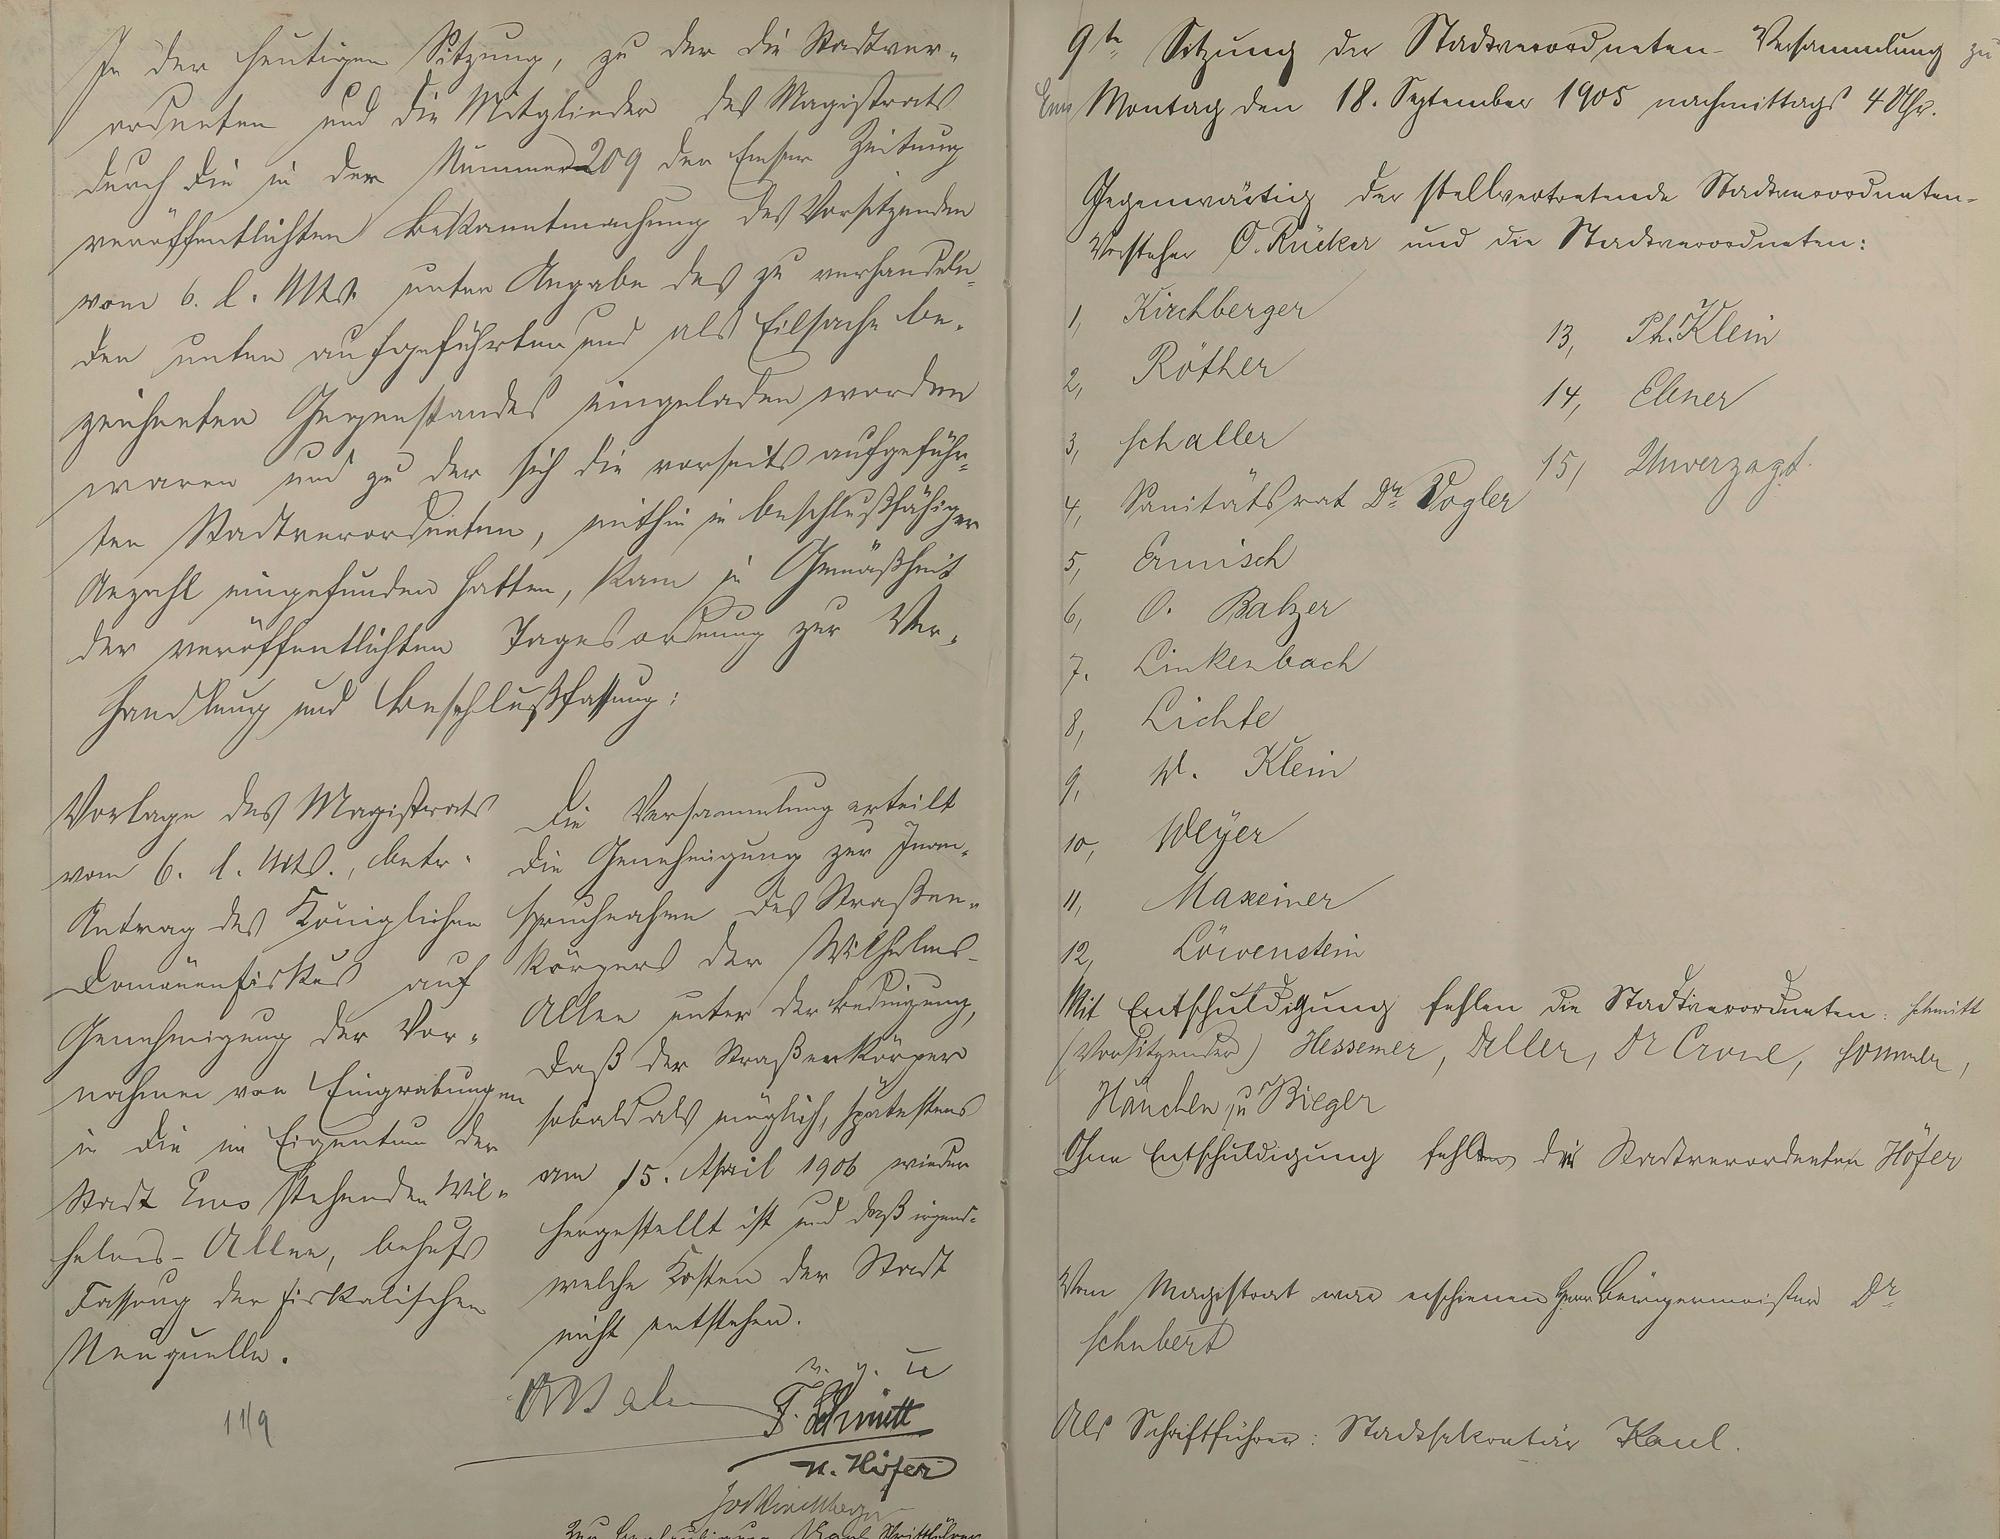 In der heutigen Sitzung, zu der die Stadtver-
ordneten und die Mitglieder des Magistrats
durch die in der Nummer 209 der Emser Zeitung
veröffentlichten Bekanntmachung des Vorsitzenden
vom 6. l. Mts. unter Angabe des zu verhandeln-
den unten aufgeführten und als Eilsache be-
zeichneten Gegenstandes eingeladen worden
waren und zu der sich die vorseits aufgeführ-
ten Stadtverordneten, mithin in beschlußfähiger
Anzahl eingefunden hatten, kam in Gemäßheit
der veröffentlichten Tagesordnung zur Ver-
handlung und Beschlußfassung:
Vorlage des Magistrats
vom 6. l. Mts., betr.
Antrag des Königlichen
Domänenfiskus auf
Genehmigung der Vor-
nahme von Eingrabungen
in die im Eigentum der
Stadt Ems stehenden Wil-
helms-Allee, behufs
Fassung der fiskalischen
Neuquelle.
11/9
Die Versammlung erteilt
die Genehmigung zur Inan-
spruchnahme des Straßen-
körpers der Wilhelms-
Allee unter der Bedingung,
daß der Straßenkörper
sobald als möglich, spätestens
am 15. April 1906 wieder
hergestellt ist und daß irgend-
welche Kosten der Stadt
nicht entstehen.
v. g. u
F. Schmitt
H. Höfer
Jos Kirchberger
Zur Beglaubigung Kaul Schriftführer
9te Sitzung der Stadtverordneten-Versammlung zu
Ems Montag den 18. September 1905 nachmittags 4 Uhr.
Gegenwärtig der stellvertretende Stadtverordneten-
Vorsteher O. Rücker und die Stadtverordneten:
1, Kirchberger
2, Röther
3, Schaller
4, Sanitätsrat Dr. Vogler
5, Ermisch
6, O. Balzer
7. Linkenbach
8, Lichte
9, W. Klein
10, Weyer
11, Maxeiner
12, Löwenstein
13, Ph. Klein
14, Ebner
15, Unverzagt.
Mit Entschuldigung fehlen die Stadtverordneten: Schmitt
(Vorsitzender) Hessemer, Deller, Dr Crone, Sommer,
Hänchen, u Bieger
Ohne Entschuldigung fehlen die Stadtverordneten Höfer
Vom Magistrat war erschienen Herr Bürgermeister Dr
Schubert
Als Schriftführer: Stadtsekretär Kaul.